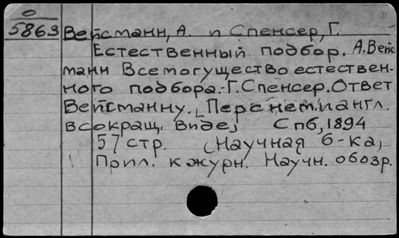 0
5863 Вейсманн, А. и Спенсер, Г.
Естественный подбор. А.Вейс
манн Всемогущество естествен-
ного подбора.-Г.Спенсер.Ответ
Вейсманну. [Пер.с нем.и англ.
в сокращ. виде] Спб, 1894
57 стр. (Научная б-ка,
Прил. к журн. Научн. обозр.